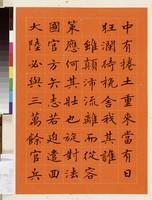 中有捲土重來當有日
狂瀾待挽舍我其誰
雖顛沛流離而從容
策應何其壯也旋對法
國官方矢志若迫遣回
大陸必與三萬餘官兵